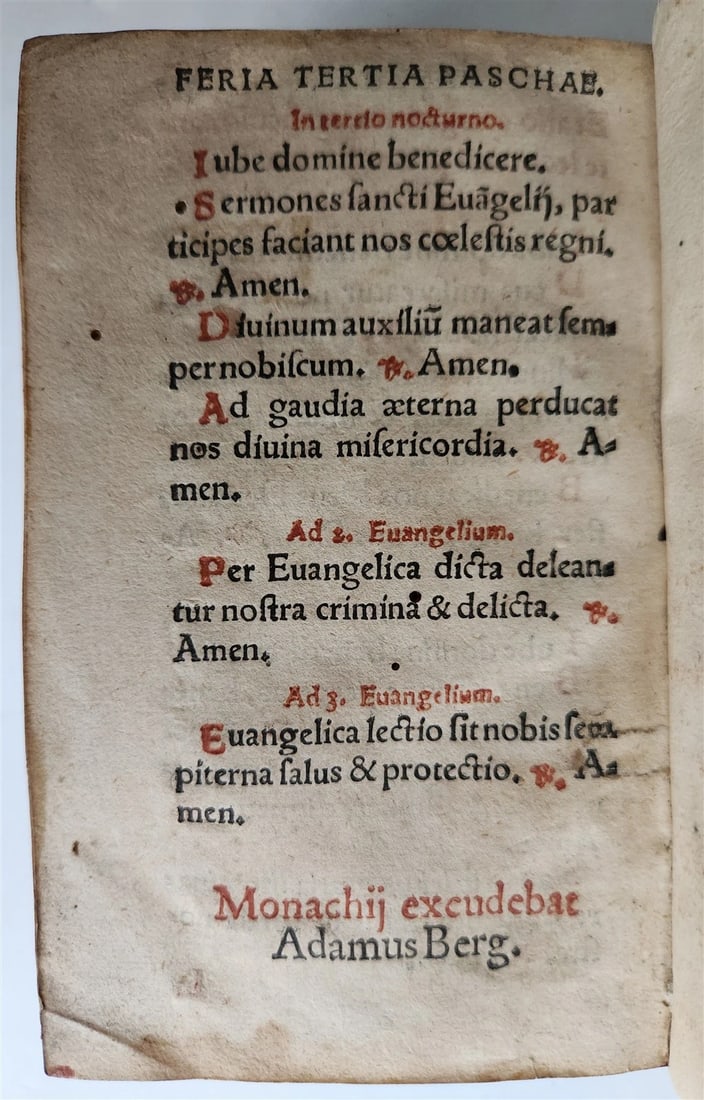 FERIA TERTIA PASCHAE.
In tertio nocturno.
Iube domine benedicere.
Sermones ſancti Euãgelij, par
ticipes faciant nos cœleſtis regni.
℟. Amen.
Diuinum auxiliũ maneat ſem⸗
per nobiſcum. ℟. Amen.
Ad gaudia æterna perducat
nos diuina miſericordia. ℟. A⸗
men.
Ad 2. Euangelium.
Per Euangelica dicta delean⸗
tur noſtra crimina & delicta. ℟.
Amen.
Ad 3. Euangelium.
Euangelica lectio ſit nobis ſem⸗
piterna ſalus & protectio. ℟. A⸗
men.
Monachij excudebat
Adamus Berg.